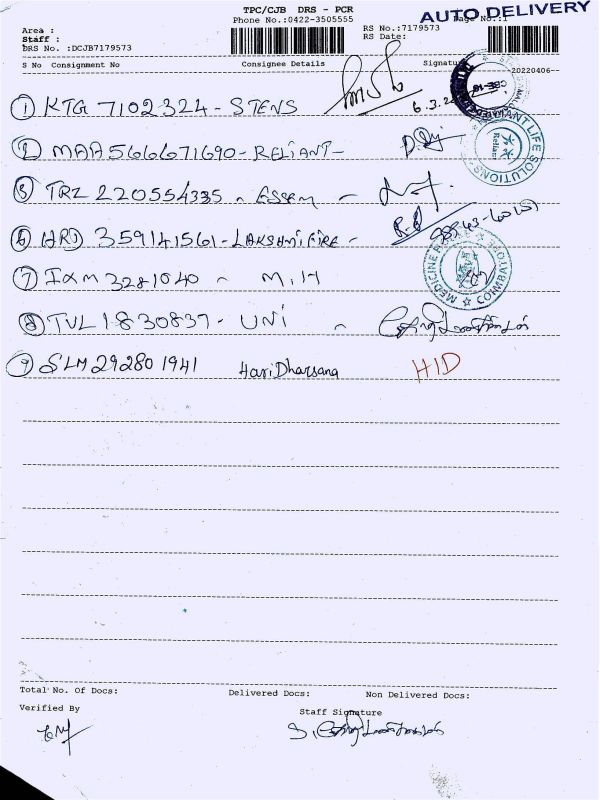 TPC/CJB DRS - PCR
AUTO DELIVERY
Phone No.:0422-3505555
Page No.:1
Area :
RS No.:7179573
Staff :
RS Date:
DRS No. :DCJB7179573
S No Consignment No Consignee Details Signature
20220406-
① KTG 7102324 - STENS
② MAA 566671690 - RELIANT -
RADIANT LIFE SOLUTIONS
③ TRZ 220554335 - ESSEM -
⑥ HRD 359141561 - LAKSHMI FIRE -
⑦ IXM 3281040 - M.H
MEDICINE COIMBATORE
⑧ TVL 1830837 - UNI -
⑨ SLM 292801941 Hari Dharsana HID
Total No. Of Docs: Delivered Docs: Non Delivered Docs:
Verified By Staff Signature